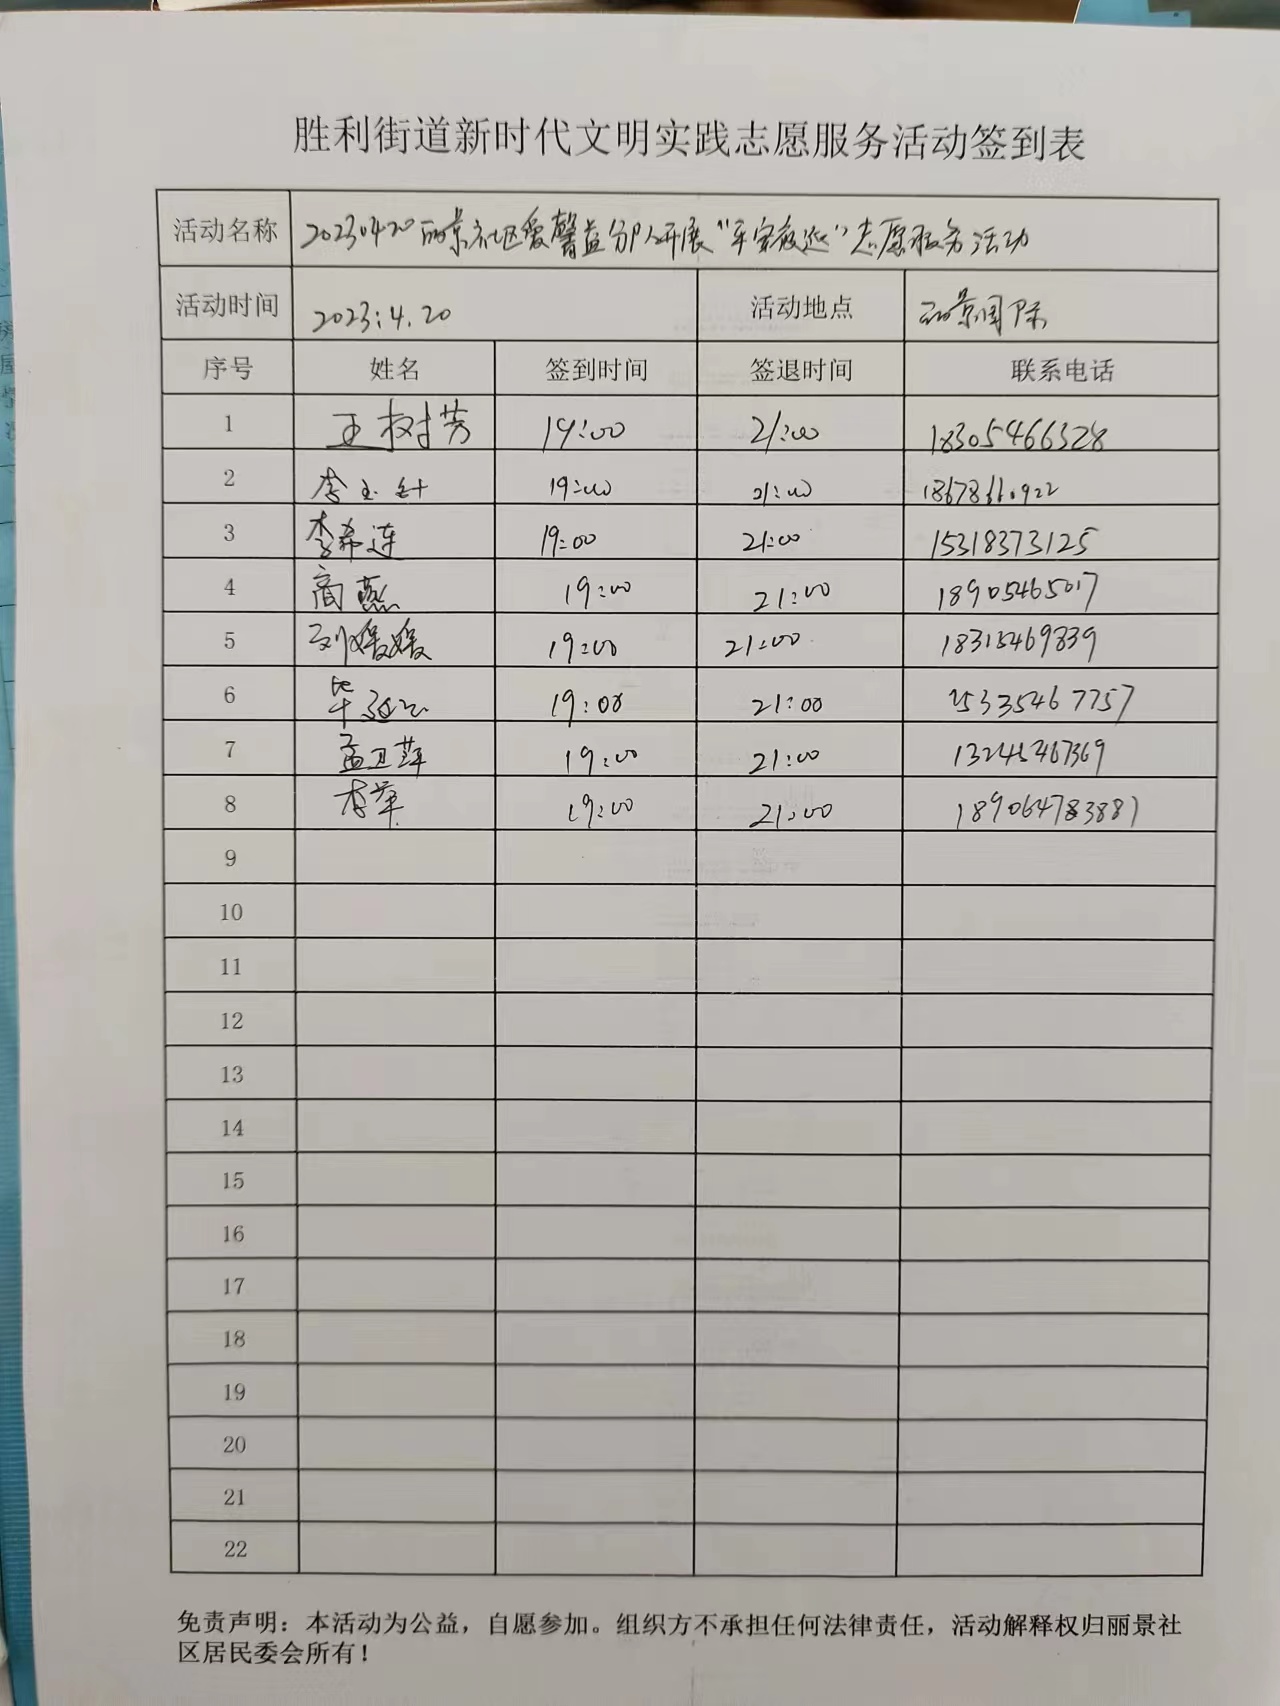 胜利街道新时代文明实践志愿服务活动签到表
活动名称 20230420丽景社区爱馨益分队开展“平安夜巡”志愿服务活动
活动时间 2023.4.20 活动地点 丽景国际
序号 姓名 签到时间 签退时间 联系电话
1 王树芳 19:00 21:00 18305466328
2 李玉 19:00 21:00
3 李希连 19:00 21:00 15318373125
4 商燕 19:00 21:00 18905465017
5 刘媛媛 19:00 21:00 18315469839
6 毕 19:00 21:00 15335467757
7 孟卫萍 19:00 21:00 13245467369
8 李萍 19:00 21:00 18906478388
9
10
11
12
13
14
15
16
17
18
19
20
21
22
免责声明：本活动为公益，自愿参加。组织方不承担任何法律责任，活动解释权归丽景社
区居民委会所有！